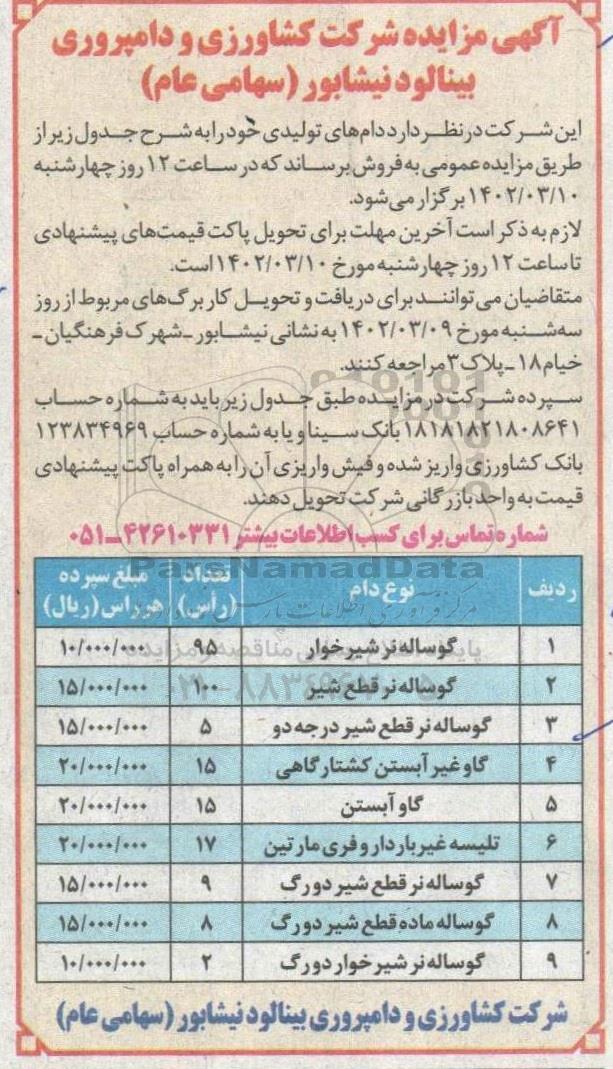 آگهی مزایده شرکت کشاورزی و دامپروری
بینالود نیشابور (سهامی عام)
این شرکت در نظر دارد دام‌های تولیدی خود را به شرح جدول زیر از
طریق مزایده عمومی به فروش برساند که در ساعت ۱۲ روز چهارشنبه
۱۴۰۲/۰۳/۱۰ برگزار می‌شود.
لازم به ذکر است آخرین مهلت برای تحویل پاکت قیمت‌های پیشنهادی
تا ساعت ۱۲ روز چهارشنبه مورخ ۱۴۰۲/۰۳/۱۰ است.
متقاضیان می‌توانند برای دریافت و تحویل کاربرگ‌های مربوط از روز
سه‌شنبه مورخ ۱۴۰۲/۰۳/۰۹ به نشانی نیشابور ـ شهرک فرهنگیان ـ
خیام ۱۸ ـ پلاک ۳ مراجعه کنند.
سپرده شرکت در مزایده طبق جدول زیر باید به شماره حساب
۱۸۱۸۱۸۲۱۸۰۸۶۴۱ بانک سینا و یا به شماره حساب ۱۲۳۸۳۴۹۶۹
بانک کشاورزی واریز شده و فیش واریزی آن را به همراه پاکت پیشنهادی
قیمت به واحد بازرگانی شرکت تحویل دهند.
شماره تماس برای کسب اطلاعات بیشتر ۴۲۶۱۰۳۳۱-۰۵۱
ردیف نوع دام تعداد (رأس) مبلغ سپرده هر راس (ریال)
۱ گوساله نر شیرخوار ۹۵ ۱۰/۰۰۰/۰۰۰
۲ گوساله نر قطع شیر ۱۰۰ ۱۵/۰۰۰/۰۰۰
۳ گوساله نر قطع شیر درجه دو ۵ ۱۵/۰۰۰/۰۰۰
۴ گاو غیر آبستن کشتارگاهی ۱۵ ۲۰/۰۰۰/۰۰۰
۵ گاو آبستن ۱۵ ۲۰/۰۰۰/۰۰۰
۶ تلیسه غیرباردار و فری مارتین ۱۷ ۲۰/۰۰۰/۰۰۰
۷ گوساله نر قطع شیر دورگ ۹ ۱۵/۰۰۰/۰۰۰
۸ گوساله ماده قطع شیر دورگ ۸ ۱۵/۰۰۰/۰۰۰
۹ گوساله نر شیرخوار دورگ ۲ ۱۰/۰۰۰/۰۰۰
شرکت کشاورزی و دامپروری بینالود نیشابور (سهامی عام)
ParsNamadData